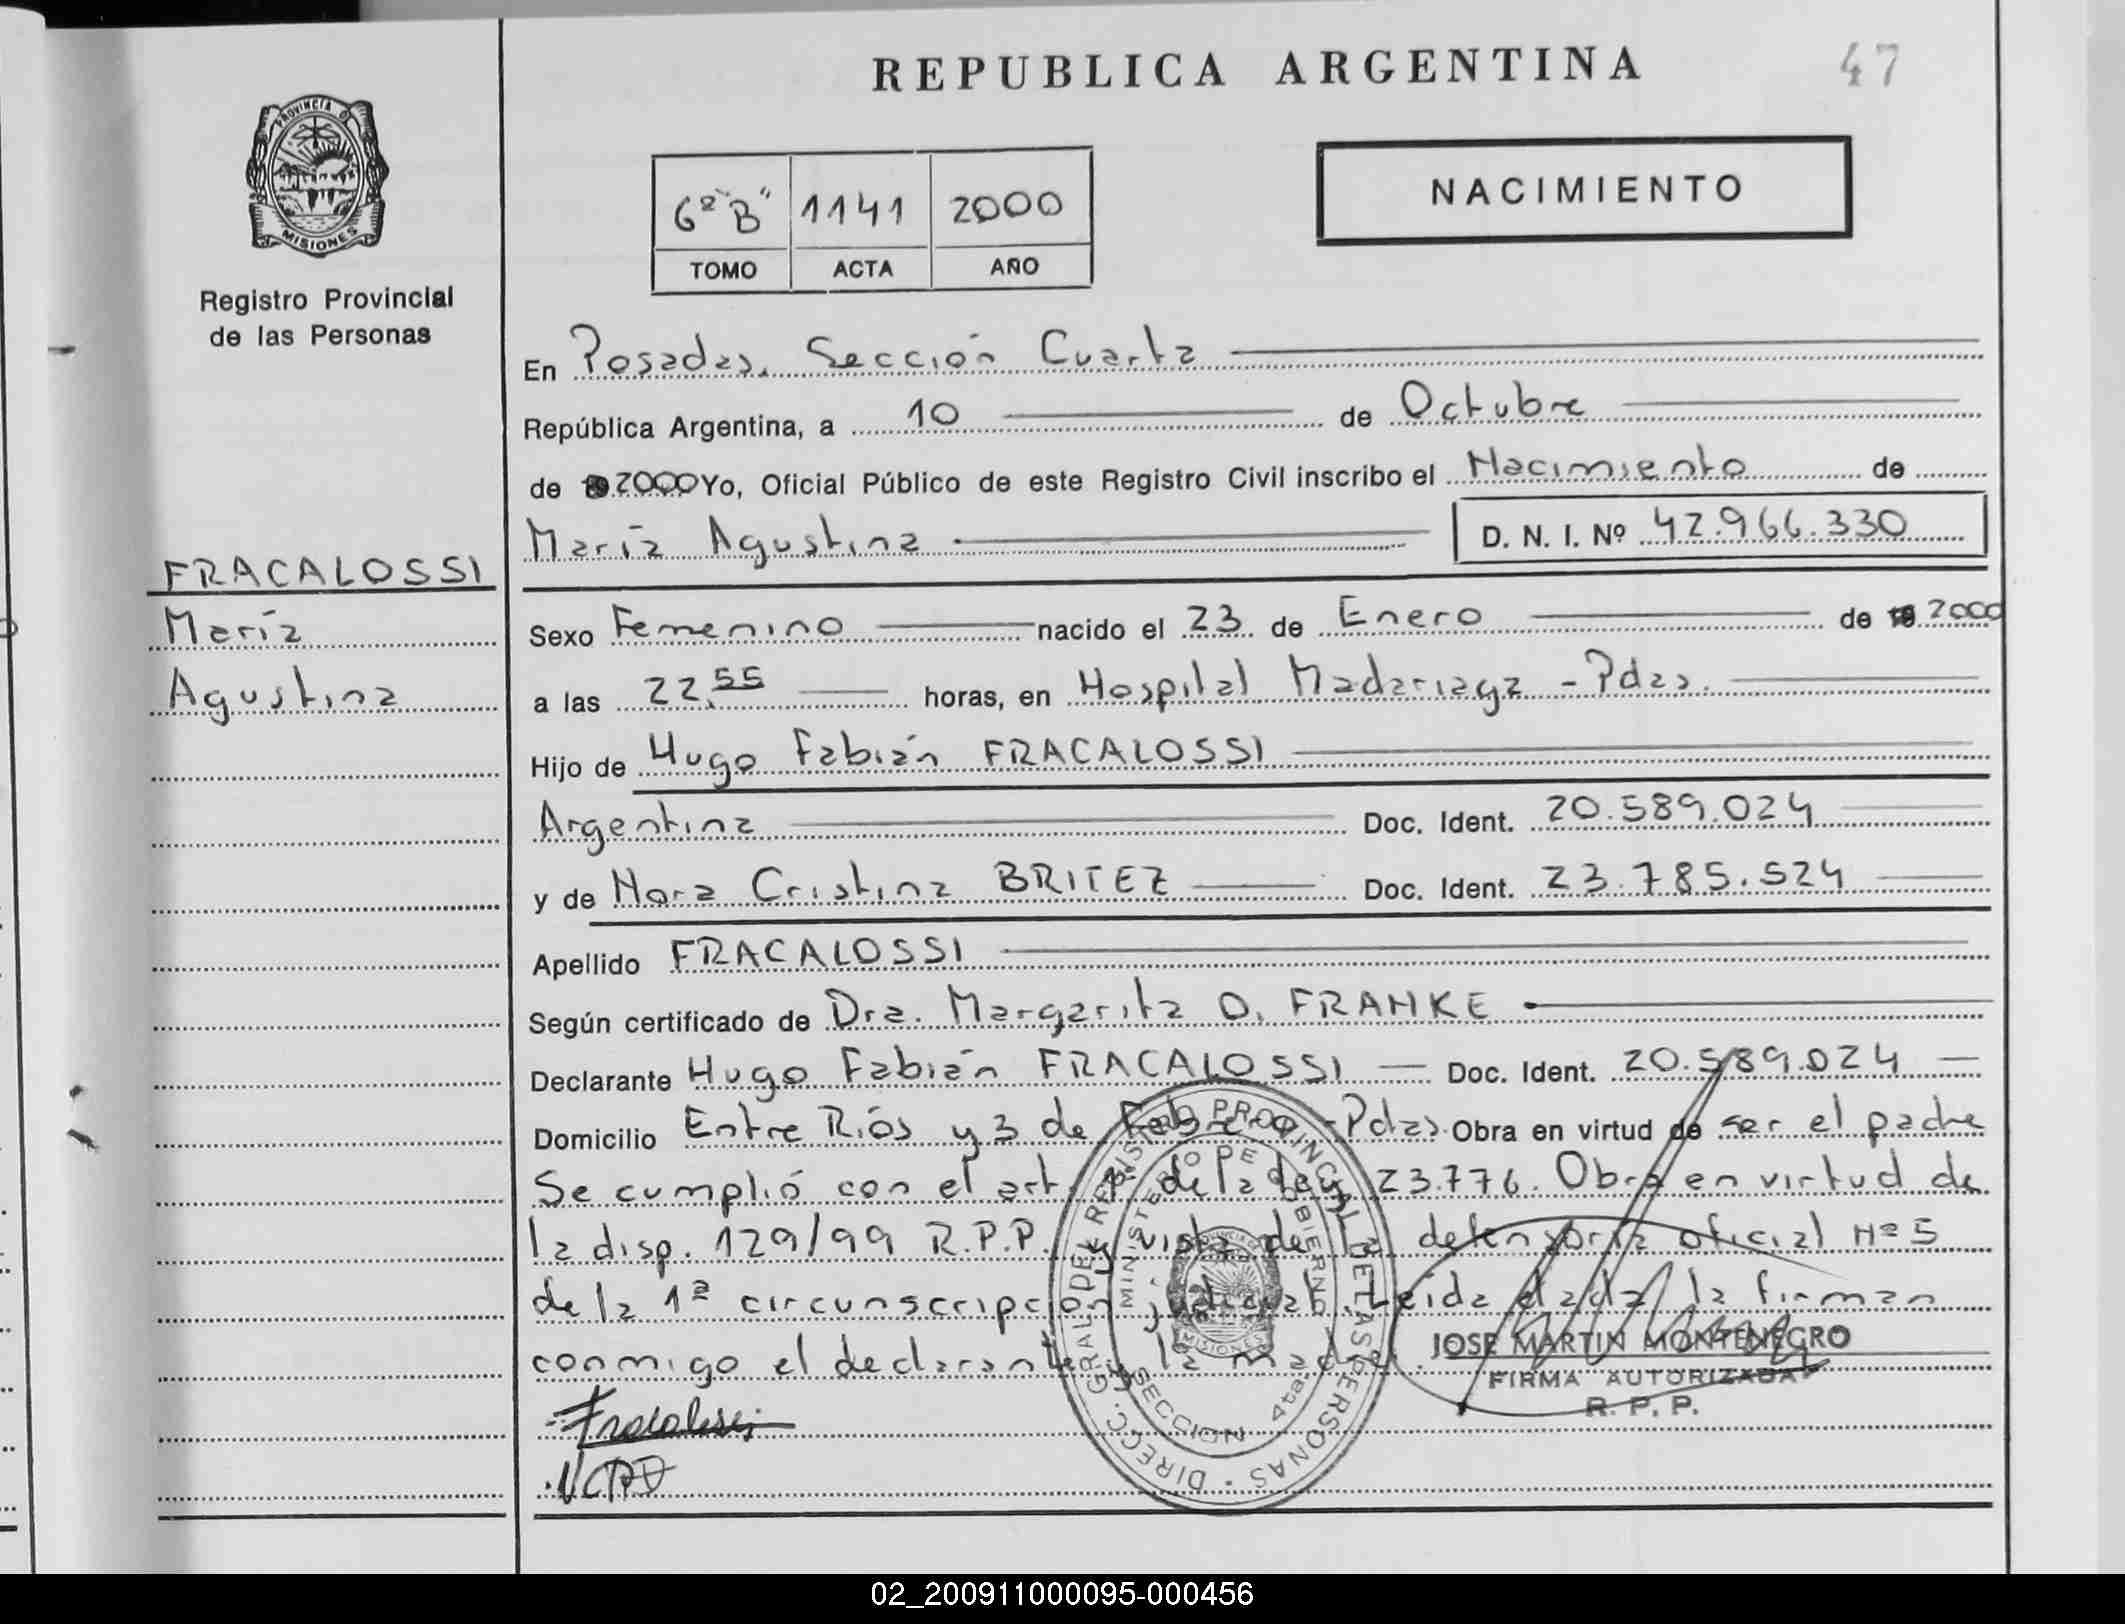 REPUBLICA ARGENTINA
47
PROVINCIA D
MISIONES
Registro Provincial
de las Personas
6º "B" 1141 2000
TOMO ACTA AÑO
NACIMIENTO
En Posadas, Sección Cuarta
República Argentina, a 10 de Octubre
de 2000 Yo, Oficial Público de este Registro Civil inscribo el Nacimiento de
María Agustina D. N. I. Nº 42.966.330
FRACALOSSI
María
Agustina
Sexo Femenino nacido el 23 de Enero de 2000
a las 22,55 horas, en Hospital Madariaga - Pdas.
Hijo de Hugo Fabián FRACALOSSI
Argentina Doc. Ident. 20.589.024
y de Nora Cristina BRITEZ Doc. Ident. 23.785.524
Apellido FRACALOSSI
Según certificado de Dra. Margarita O. FRANKE
Declarante Hugo Fabián FRACALOSSI Doc. Ident. 20.589.024
Domicilio Entre Ríos y 3 de Febrero - Pdas Obra en virtud de ser el padre
Se cumplió con el art. de la Ley 23.776. Obra en virtud de
la disp. 129/99 R.P.P. y vista de la defensoría oficial Nº 5
de la 1ª circunscripción judicial. Leída dada la firman
conmigo el declarante y la madre.
DIRECC. GRAL DEL REGISTRO PROVINCIAL DE LAS PERSONAS
MINISTERIO DE GOBIERNO
MISIONES
SECCION 4ta.
JOSE MARTIN MONTENEGRO
FIRMA AUTORIZADA
R. P. P.
Fracalossi
02_200911000095-000456